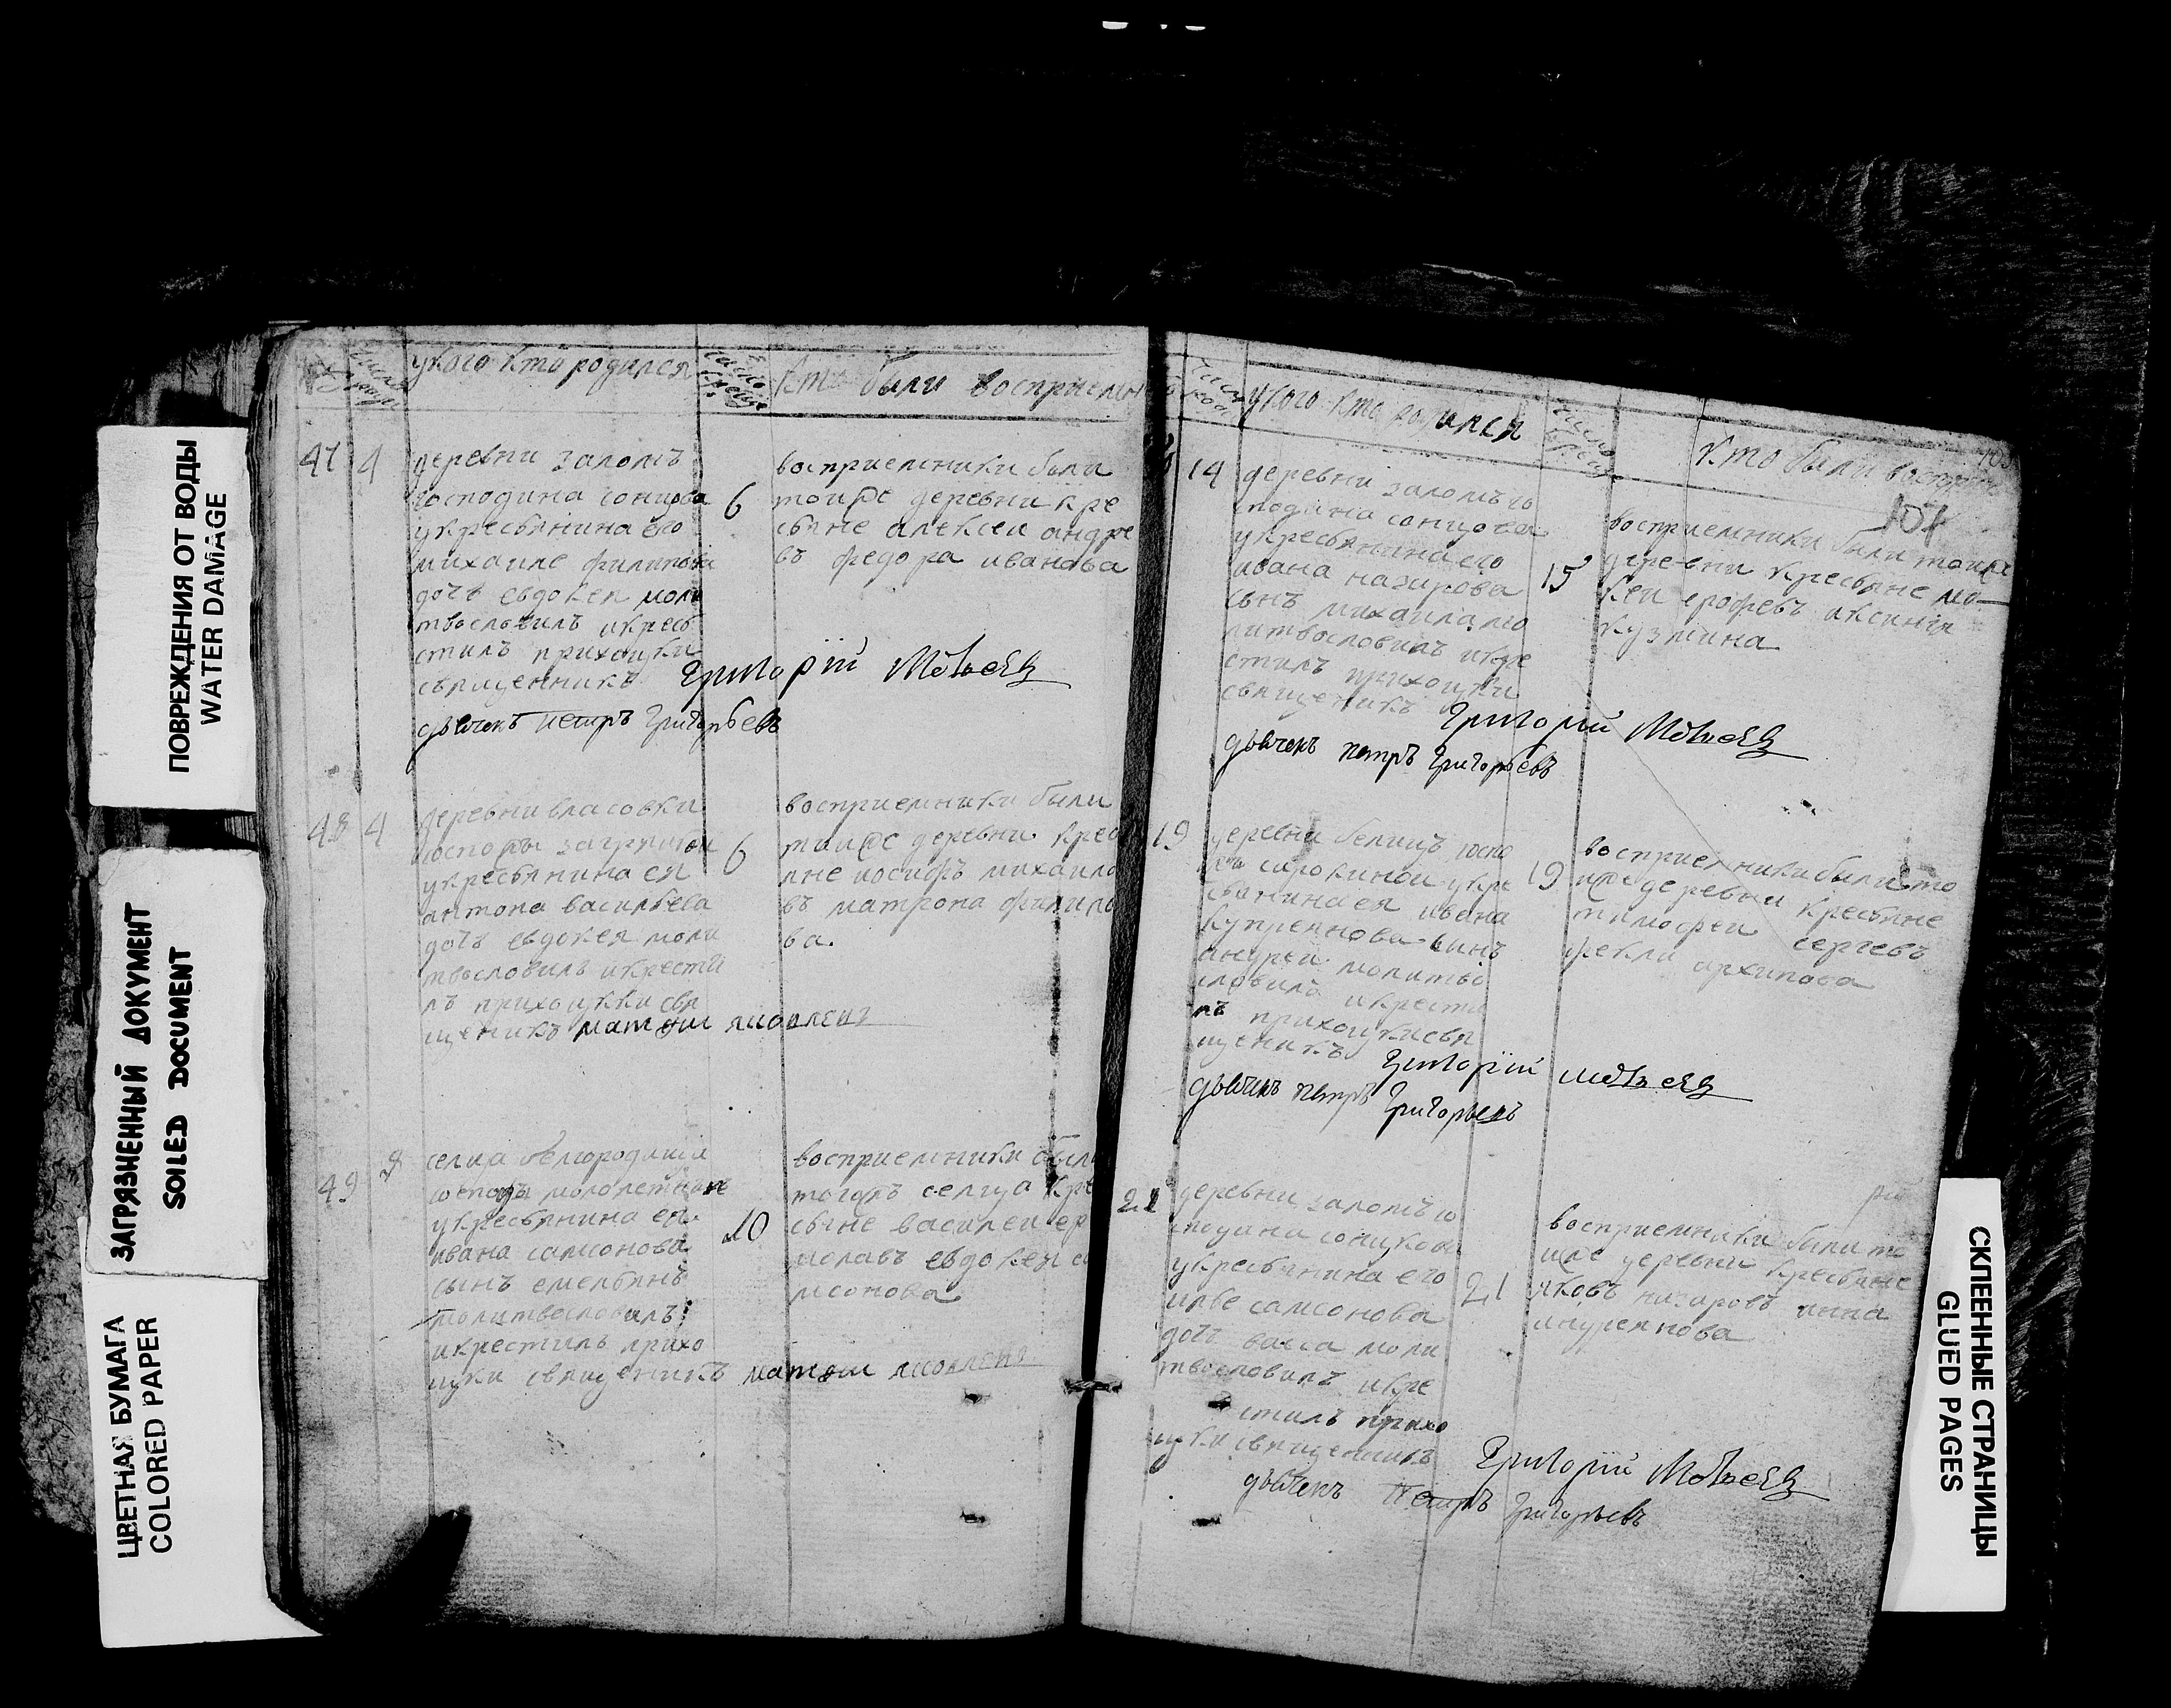 ПОВРЕЖДЕНИЯ ОТ ВОДЫ
WATER DAMAGE
ЗАГРЯЗНЕННЫЙ ДОКУМЕНТ
SOILED DOCUMENT
ЦВЕТНАЯ БУМАГА
COLORED PAPER
укого кто родился
кто были восприемн
47 4
деревни заломъ
господина сонцова
укресьянина его
михаиле филипова
дочь евдокея моли
твословилъ икресь
стилъ приходцки
священникъ Григорій Моѳеевъ
дьячекъ петръ Григорьевъ
6
восприемники были
тоиже деревни кре
сьяне алексеи андре
въ федора иванова
48 4
деревни власовки
госпожи
укресьянина ея
антона васильева
дочь евдокея моли
твословилъ икрести
лъ приходцки свя
щеникъ матѳеи
6
восприемники были
тоиже деревни крес
яне иосифъ михаило
въ матрона филипо
ва.
49 8
селца
госпожи
укресьянина ея
ивана самсонова
сынъ емельянъ
молитвословилъ
икрестилъ прихо
цки священикъ матѳеи
10
восприемники были
тогожъ селца кре
сьяне василеи ер
молавъ евдокея са
мсонова
укого кто родился
кто были воспр
103
104
14
деревни заломъ го
сподина сонцова
укресьянина его
ивана назарова
сынъ михаила мо
литвословилъ икре
стилъ приходцки
священикъ Григорій Моѳеевъ
дьячекъ петръ Григорьевъ
15
восприемники были тоиже
деревни кресьяне мо
кеи ерофевъ аксиния
кузмина
19
деревни белицъ госпо
жи сорокинои укре
сьянина ея ивана
купреянова сынъ
андреи молитво
словилъ икрести
лъ приходцки свя
щеникъ Григорій Моѳеевъ
дьячекъ петръ Григорьевъ
19
восприемники были то
иже деревни кресьяне
тимофеи сергевъ
фекла архипова
21
деревни заломъ го
сподина сонцова
укресьянина его
илье самсонова
дочь васса моли
твословилъ икре
стилъ прихо
цки священникъ Григорій Моѳеевъ
дьячекъ Петръ Григорьевъ
21
восприемники были то
иже деревни кресьяне
яковъ назаровъ анна
СКЛЕЕННЫЕ СТРАНИЦЫ
GLUED PAGES